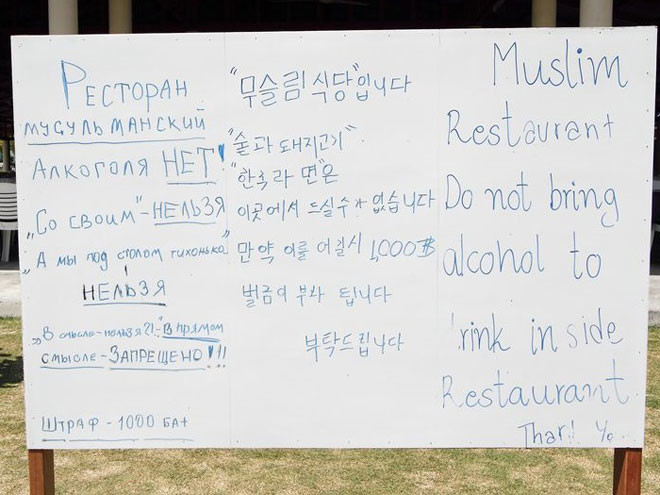 Ресторан
мусульманский
Алкоголя НЕТ!
"Со своим" - НЕЛЬЗЯ
"А мы под столом тихонько"
НЕЛЬЗЯ
"В смысле-нельзя?!" - "В прямом
смысле - ЗАПРЕЩЕНО!!!
Штраф - 1000 бат
"무슬림 식당"입니다
"술과 돼지고기"
이곳에서 드실수가 없습니다
만약 이를 어길시 1,000฿
벌금이 부과 됩니다
부탁드립니다
Muslim
Restaurant
Do not bring
alcohol to
rink in side
Restaurant